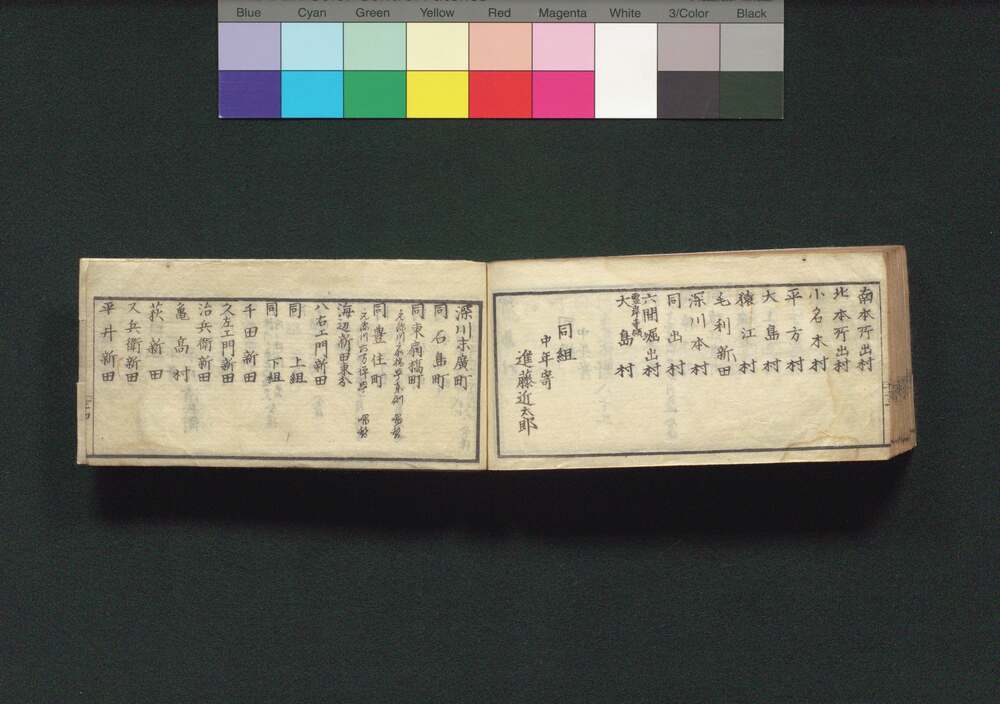 Blue Cyan Green Yellow Red Magenta White 3/Color Black
南本所出村
北本所出村
小名木村
平方村
大島村
猿江村
毛利新田
深川本村
同出村
六間堀出村
大島村
同組
中年寄
進藤近太郎
深川末廣町
同石島町
同東扇橋町
同豊住町
海辺新田東分
八右エ門新田
同上組
同下組
千田新田
久左エ門新田
治兵衛新田
亀高村
荻新田
又兵衛新田
平井新田